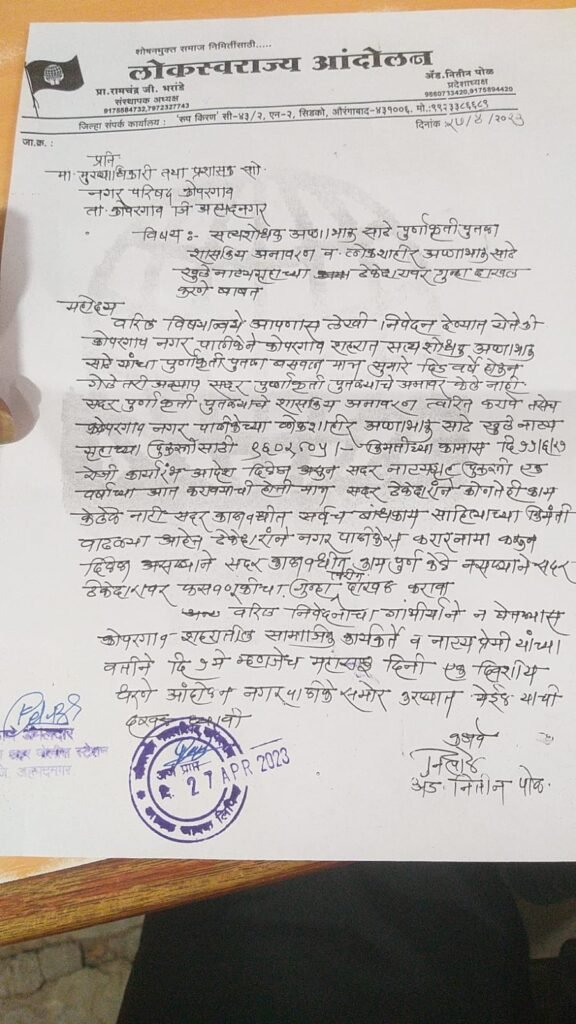 शोषनमुक्त समाज निमितीसाठी.....
लोकस्वराज्य आंदोलन
प्रा.रामचंद्र जी. भरांडे
संस्थापक अध्यक्ष
9175884732,7972327743
ॲड.नितीन पोळ
प्रदेशाध्यक्ष
9860713420,9175894420
जिल्हा संपर्क कार्यालय : 'रूप किरण' सी-४३/२, एन-२, सिडको, औरंगाबाद-४३१००६, मो.:९९२३३८६६८९
जा.क्र. :
दिनांक २७/४/२०२३
प्रति
मा. मुख्याधिकारी तथा प्रशासक सो.
नगर परिषद कोपरगाव
ता. कोपरगाव जि अहमदनगर
विषय :- सत्यशोधक अण्णाभाऊ साठे पुर्णाकृती पुतळा
शासकिय अनावरण व लोकशाहीर अण्णाभाऊ साठे
खुले नाट्यगृहाच्या ठेकेदारावर गुन्हा दाखल
करणे बाबत
महोदय
वरिल विषयान्वये आपणास लेखी निवेदन देण्यात येते की
कोपरगाव नगर पालीकेने कोपरगाव शहरात सत्यशोधक अण्णाभाऊ
साठे यांचा पुर्णाकृती पुतळा बसवला मात्र सुमारे दिड वर्षे होऊन
गेले तरी अद्याप सदर पुर्णाकृती पुतळ्याचे अनावर केले नाही
सदर पुर्णाकृती पुतळ्याचे शासकिय अनावरण त्वरित करावे तसेच
कोपरगाव नगर पालीकेच्या लोकशाहीर अण्णाभाऊ साठे खुले नाट्य
गृहाच्या दुरुस्ती साठी /- किमतीच्या कामास दि
रोजी कार्यारंभ आदेश दिलेला असुन सदर नाट्यगृह दुरुस्ती एक
वर्षाच्या आत करावयाची होती मात्र सदर ठेकेदाराने कोणतेही काम
केलेले नाही सदर कालावधीत सर्वच बांधकाम साहित्याच्या किमती
वाढल्या आहेत ठेकेदाराने नगर पालीकेस करारनामा करून
दिलेला असल्याने सदर कालावधीत काम पुर्ण केले नसल्याने सदर
ठेकेदारावर फसवणूकीचा गुन्हा त्वरीत दाखल करावा
वरिल निवेदनाचा गांभीर्याने न घेतल्यास
कोपरगाव शहरातील सामाजिक कार्यकर्ते व नाट्य प्रेमी यांच्या
वतीने दि १ मे म्हणजेच महाराष्ट्र दिनी एक दिवशीय
धरणे आंदोलन नगर पालीके समोर करण्यात येईल याची
दखल घ्यावी
कळावे
अॅड. नितीन पोळ.
अर्ज प्राप्त
दि. 27 APR 2023
जि. अहमदनगर